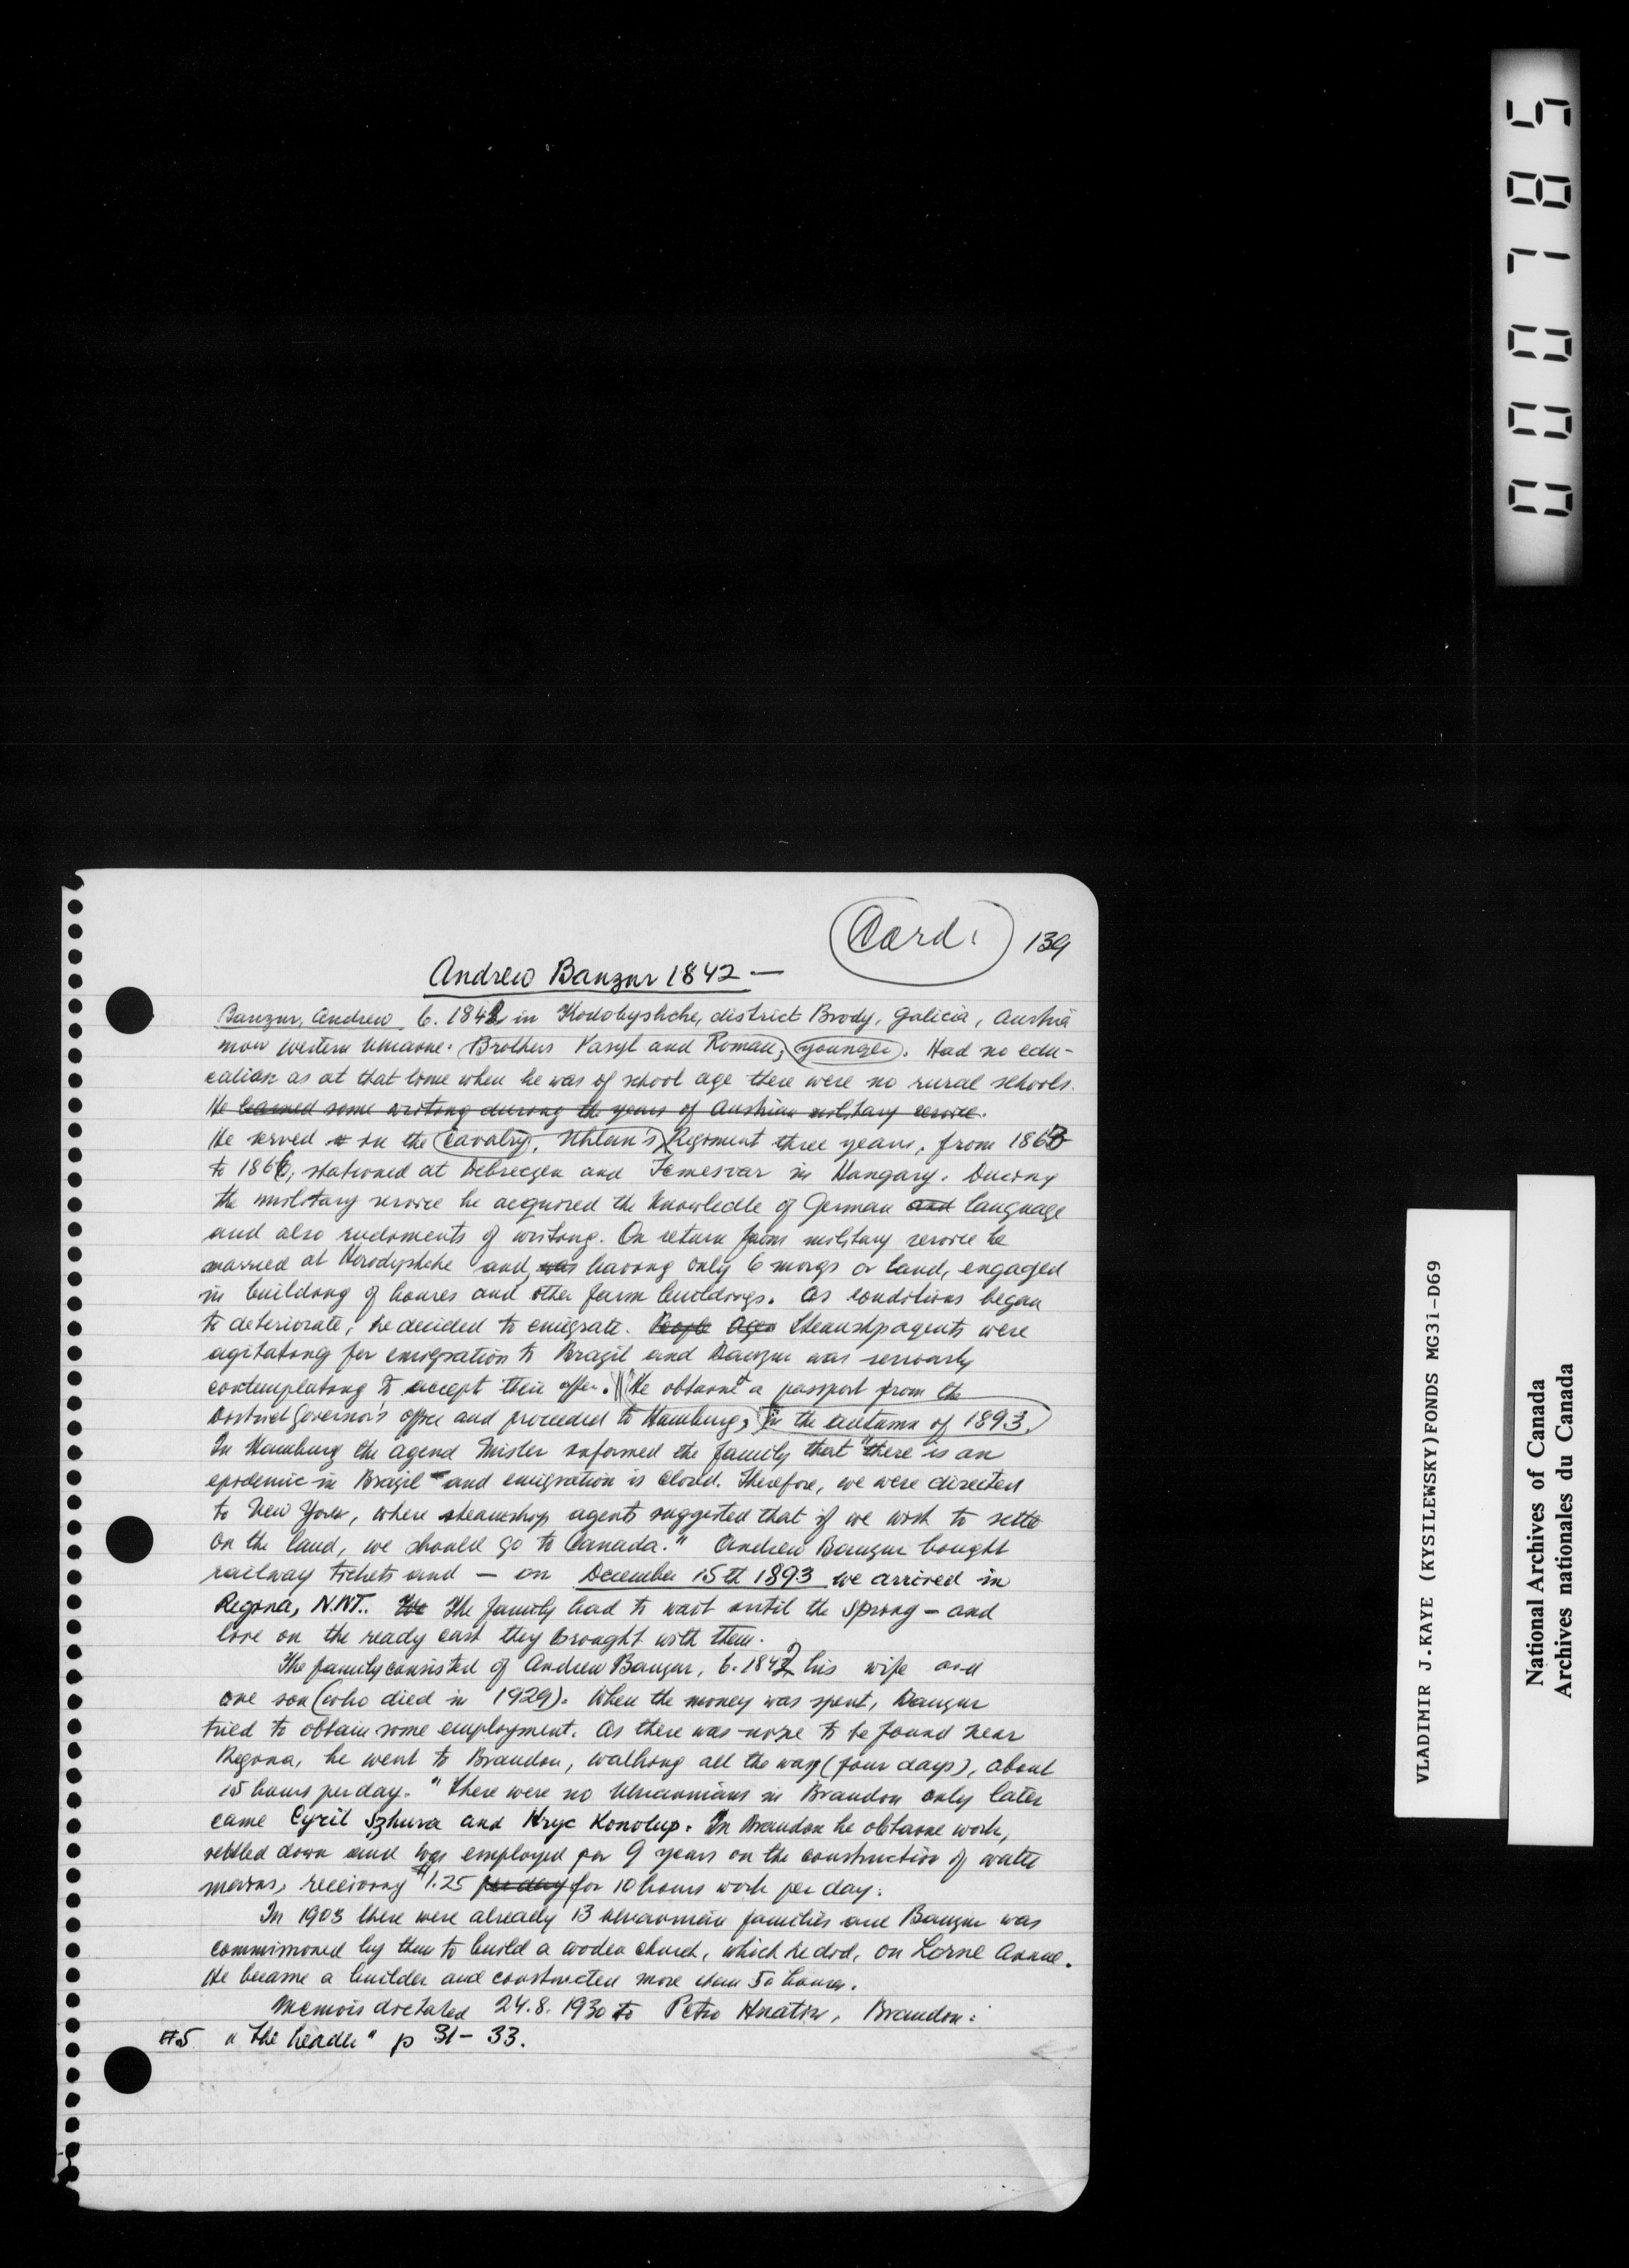 Card. 139
Andrew Banzur 1842 —
Banzur, Andrew b. 1842 in Horodyshche, district Brody, Galicia, Austria
now western Ukraine. Brothers Vasyl and Roman, younger. Had no edu-
cation as at that time when he was of school age there were no rural schools.
He learned some writing during the years of Austrian military service.
He served in the Cavalry, Uhlan's Regiment three years, from 1863
to 1866, stationed at Debreczen and Temesvar in Hungary. During
the military service he acquired the knowledle of German and language
and also rudiments of writing. On return from military service he
married at Horodyshche and, was having only 6 morgs or land, engaged
in building of houses and other farm buildings. As conditions began
to deteriorate, he decided to emigrate. People Agen Steamship agents were
agitating for emigration to Brazil and Banzur was seriously
contemplating to accept their offer. He obtained a passport from the
District Governor's office and proceeded to Hamburg, in the autumn of 1893.
In Hamburg the agend Misler informed the family that "there is an
epidemic in Brazil and emigration is closed. Therefore, we were directed
to New York, where steamship agents suggested that if we wish to settle
on the land, we should go to Canada." Andrew Banzur bought
railway tickets and — on December 15th 1893 we arrived in
Regina, N.W.T.. We The family had to wait until the spring – and
live on the ready cash they brought with them.
The family consisted of Andrew Banzur, b. 1842, his wife and
one son (who died in 1929). When the money was spent, Banzur
tried to obtain some employment. As there was none to be found near
Regina, he went to Brandon, walking all the way (four days), about
15 hours per day. "There were no Ukrainians in Brandon only later
came Cyril Szhura and Hryc Konolup. In Brandon he obtaine work,
settled down and was employed for 9 years on the construction of water
mains, receiving $1.25 per day for 10 hours work per day.
In 1903 there were already 13 Ukrainian families and Banzur was
commissioned by them to build a wooden church, which he did, on Lorne Avenue.
He became a builder and constructed more than 50 houses.
Memoirs dictated 24.8.1930 to Petro Hnatiw, Brandon:
#5 "The Leader" p 31–33.
000785
VLADIMIR J.KAYE (KYSILEWSKY)FONDS MG31-D69
National Archives of Canada
Archives nationales du Canada